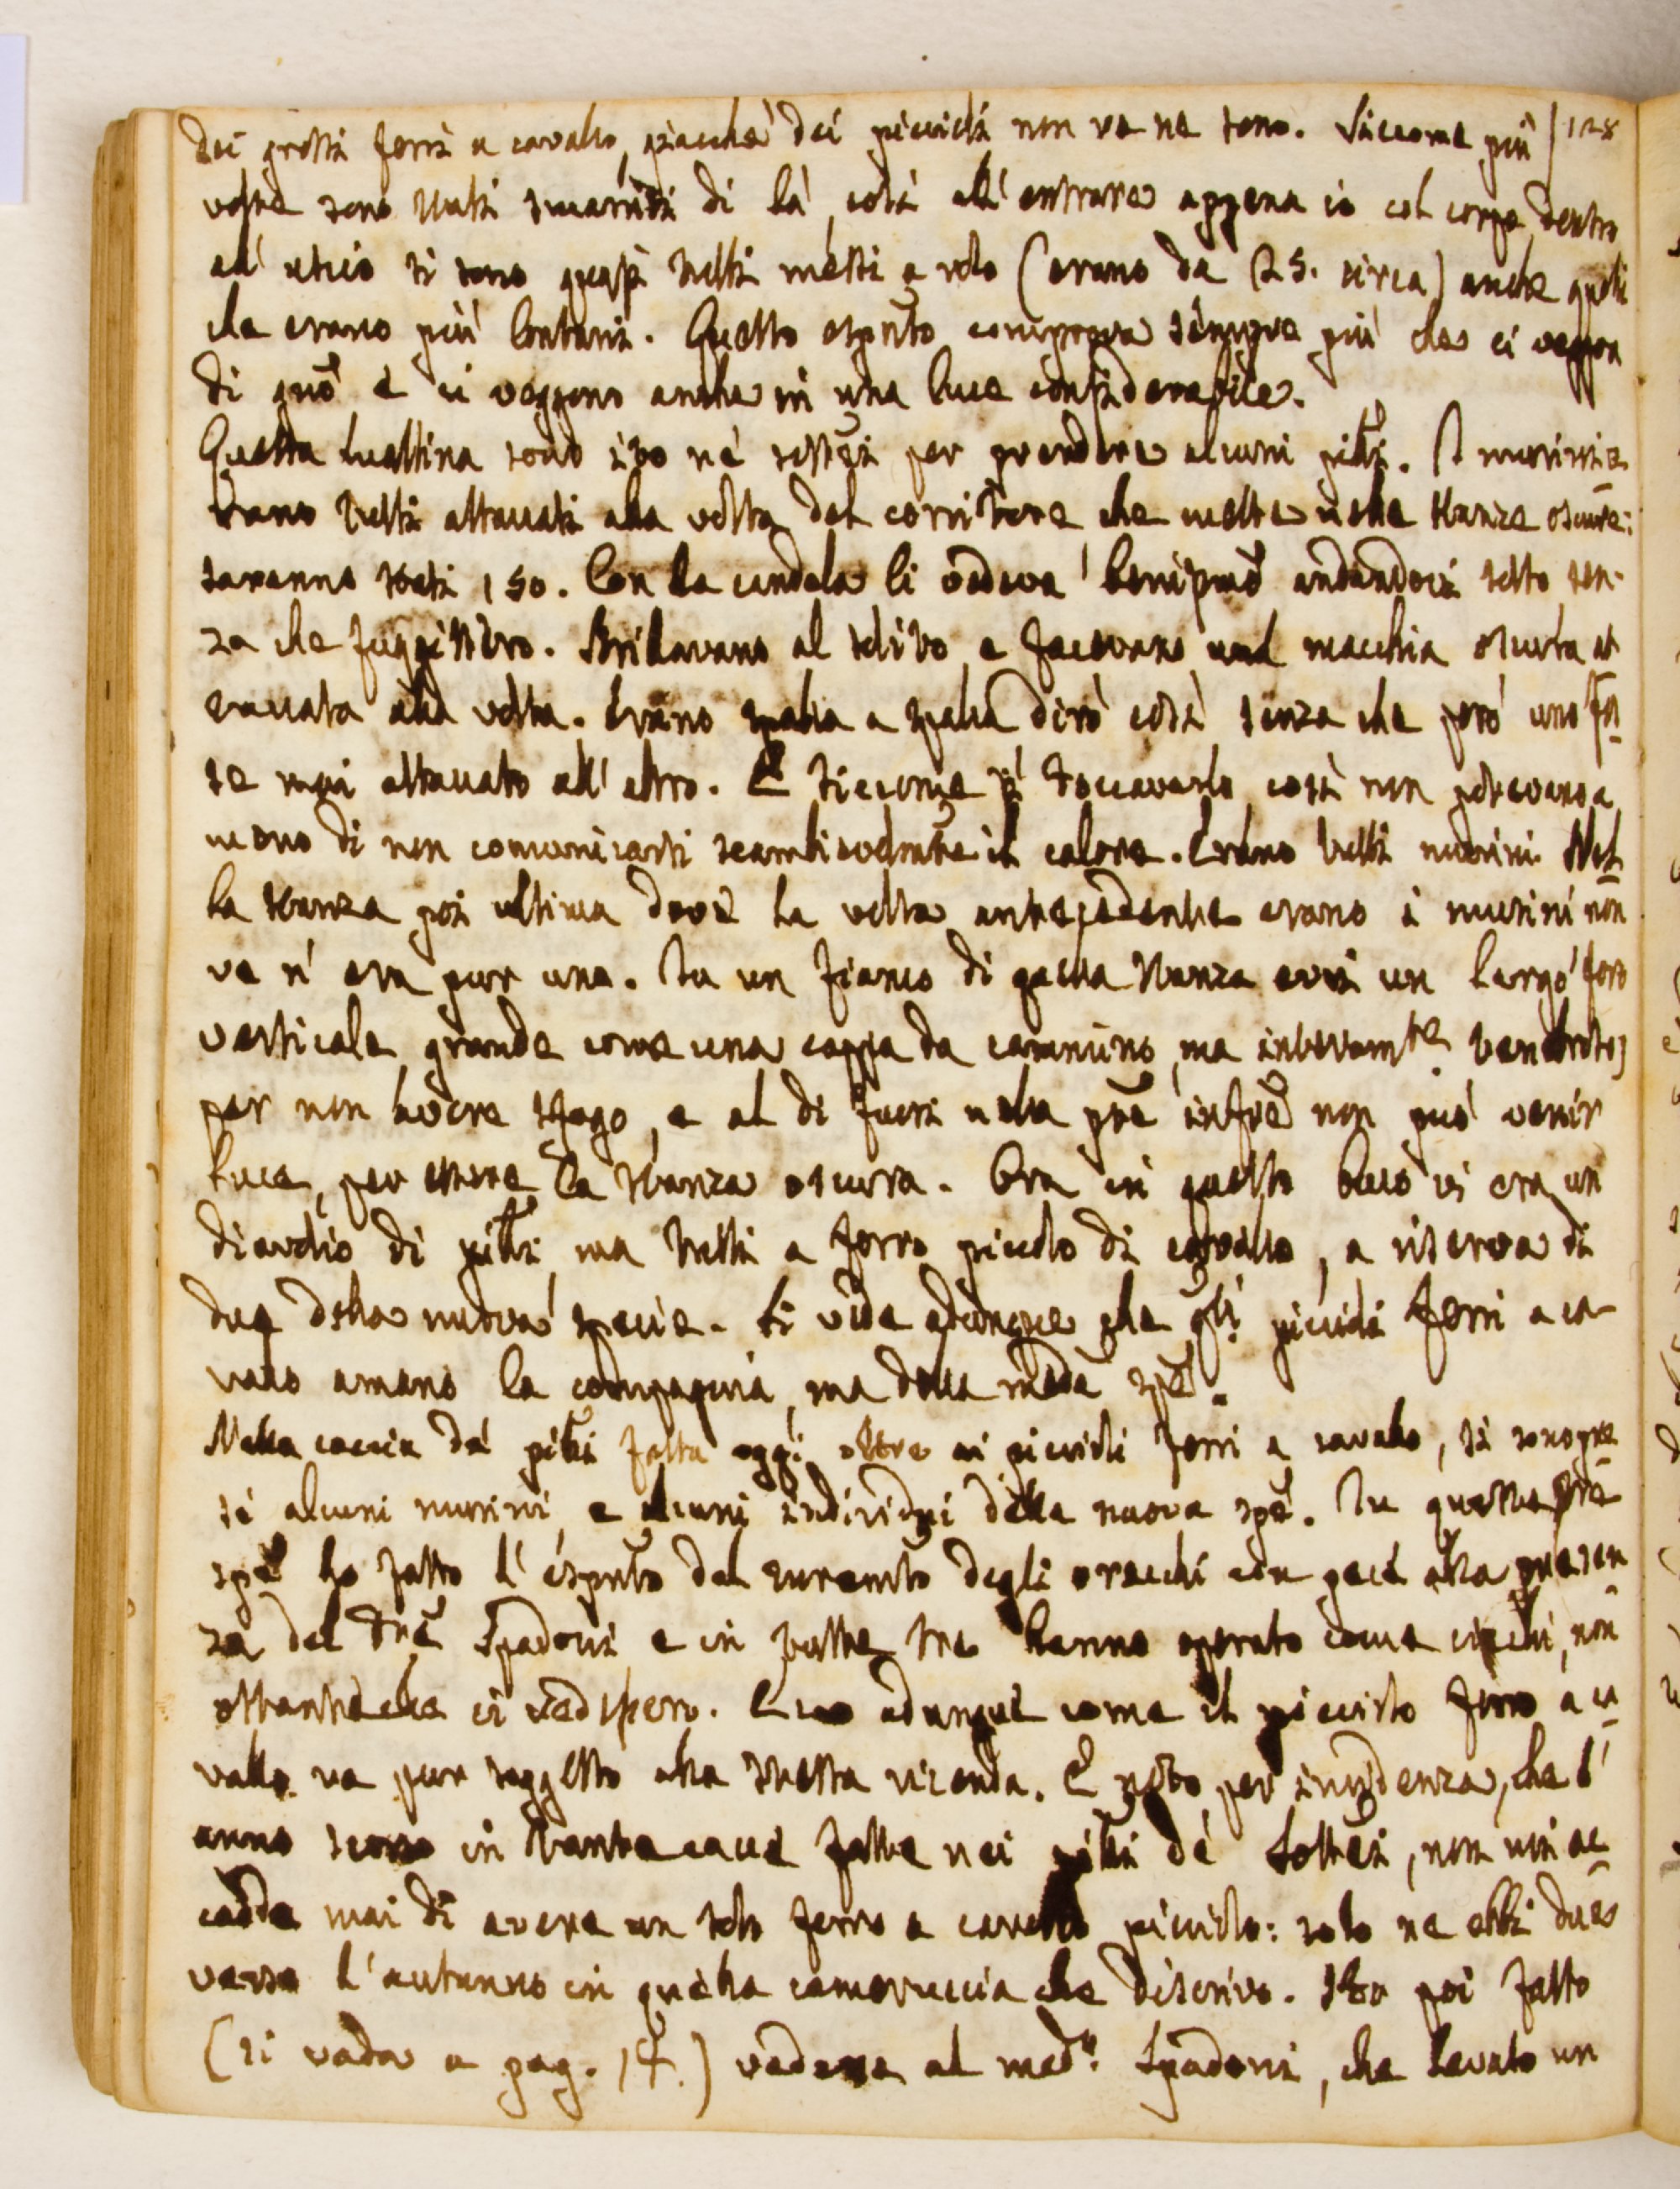 dei grossi ferri a cavallo, giacché dei piccioli non ve ne sono. Siccome più | 128
volte sono stati smarriti di là, così all' entrare appena io col corpo dentro
all' uscio si sono quasi tutti messi a volo (erano da 25. circa) anche quelli
che erano più lontani. Questo espmto comprova sempre più che ci veggon
di giõ e ci veggono anche in una luce considerabile.
Questa mattina sono ito ne' sottei per prendere alcuni pilli. I murini e
rano tutti attaccati alla volta del corritore che mette nelle stanze oscure:
saranno stati 150. Con la candela li vedeva benissimo andandovi sotto sen-
za che fuggissero. Brillavano al solito e facevano una macchia oscura at
taccata alla volta. Erano spalla a spalla dirò così senza che però uno fos
se mai attaccato all' altro. E siccome si toccavano, così non potevano a
meno di non comunicarsi scambievolmte il calore. Erano tutti murini. Nel
la stanza poi ultima dov'è la volta antecedente erano i murini non
ve n' era pur uno. In un fianco di qella stanza evvi un largo foro
verticale, grande come una cappa da cammino, ma interamte
per non avere sfogo, e al di fuori nella pte infre non può venir
luce, per essere la stanza oscura. Ora in questo buco vi era un
diavolio di pilli ma tutti a ferro piccolo di cavallo, a riserva di
due della nuova specie. Si vede adunque che gli piccioli ferri a ca
vallo amano la compagnia, ma della meda spe.
Nella caccia de' pilli fatta oggi oltre ai piccioli ferri a cavallo, si sono pre
si alcuni murini e alcuni individui della nuova spe. In questa pte
spe ho fatto l' espmto del turamto degli orecchi con pece alla presen
za del Dre Spadoni e in tutte tre hanno operato come ciechi, non
ostante che ci vedessero. Ecco adunque come il picciolo ferro a ca
vallo va pur soggetto alla stessa vicenda. È noto, per incidenza, che l'
anno scorso in tante cacce fatte nei pilli de' sottei, non mi ac
cadde mai di avere un solo ferro a cavallo picciolo: solo ne ebbi due
verso l' autunno in quella cameruccia che descrivo. Ho poi fatto
(si vada a pag. 14.) vedere al medo. Spadoni, che levato un